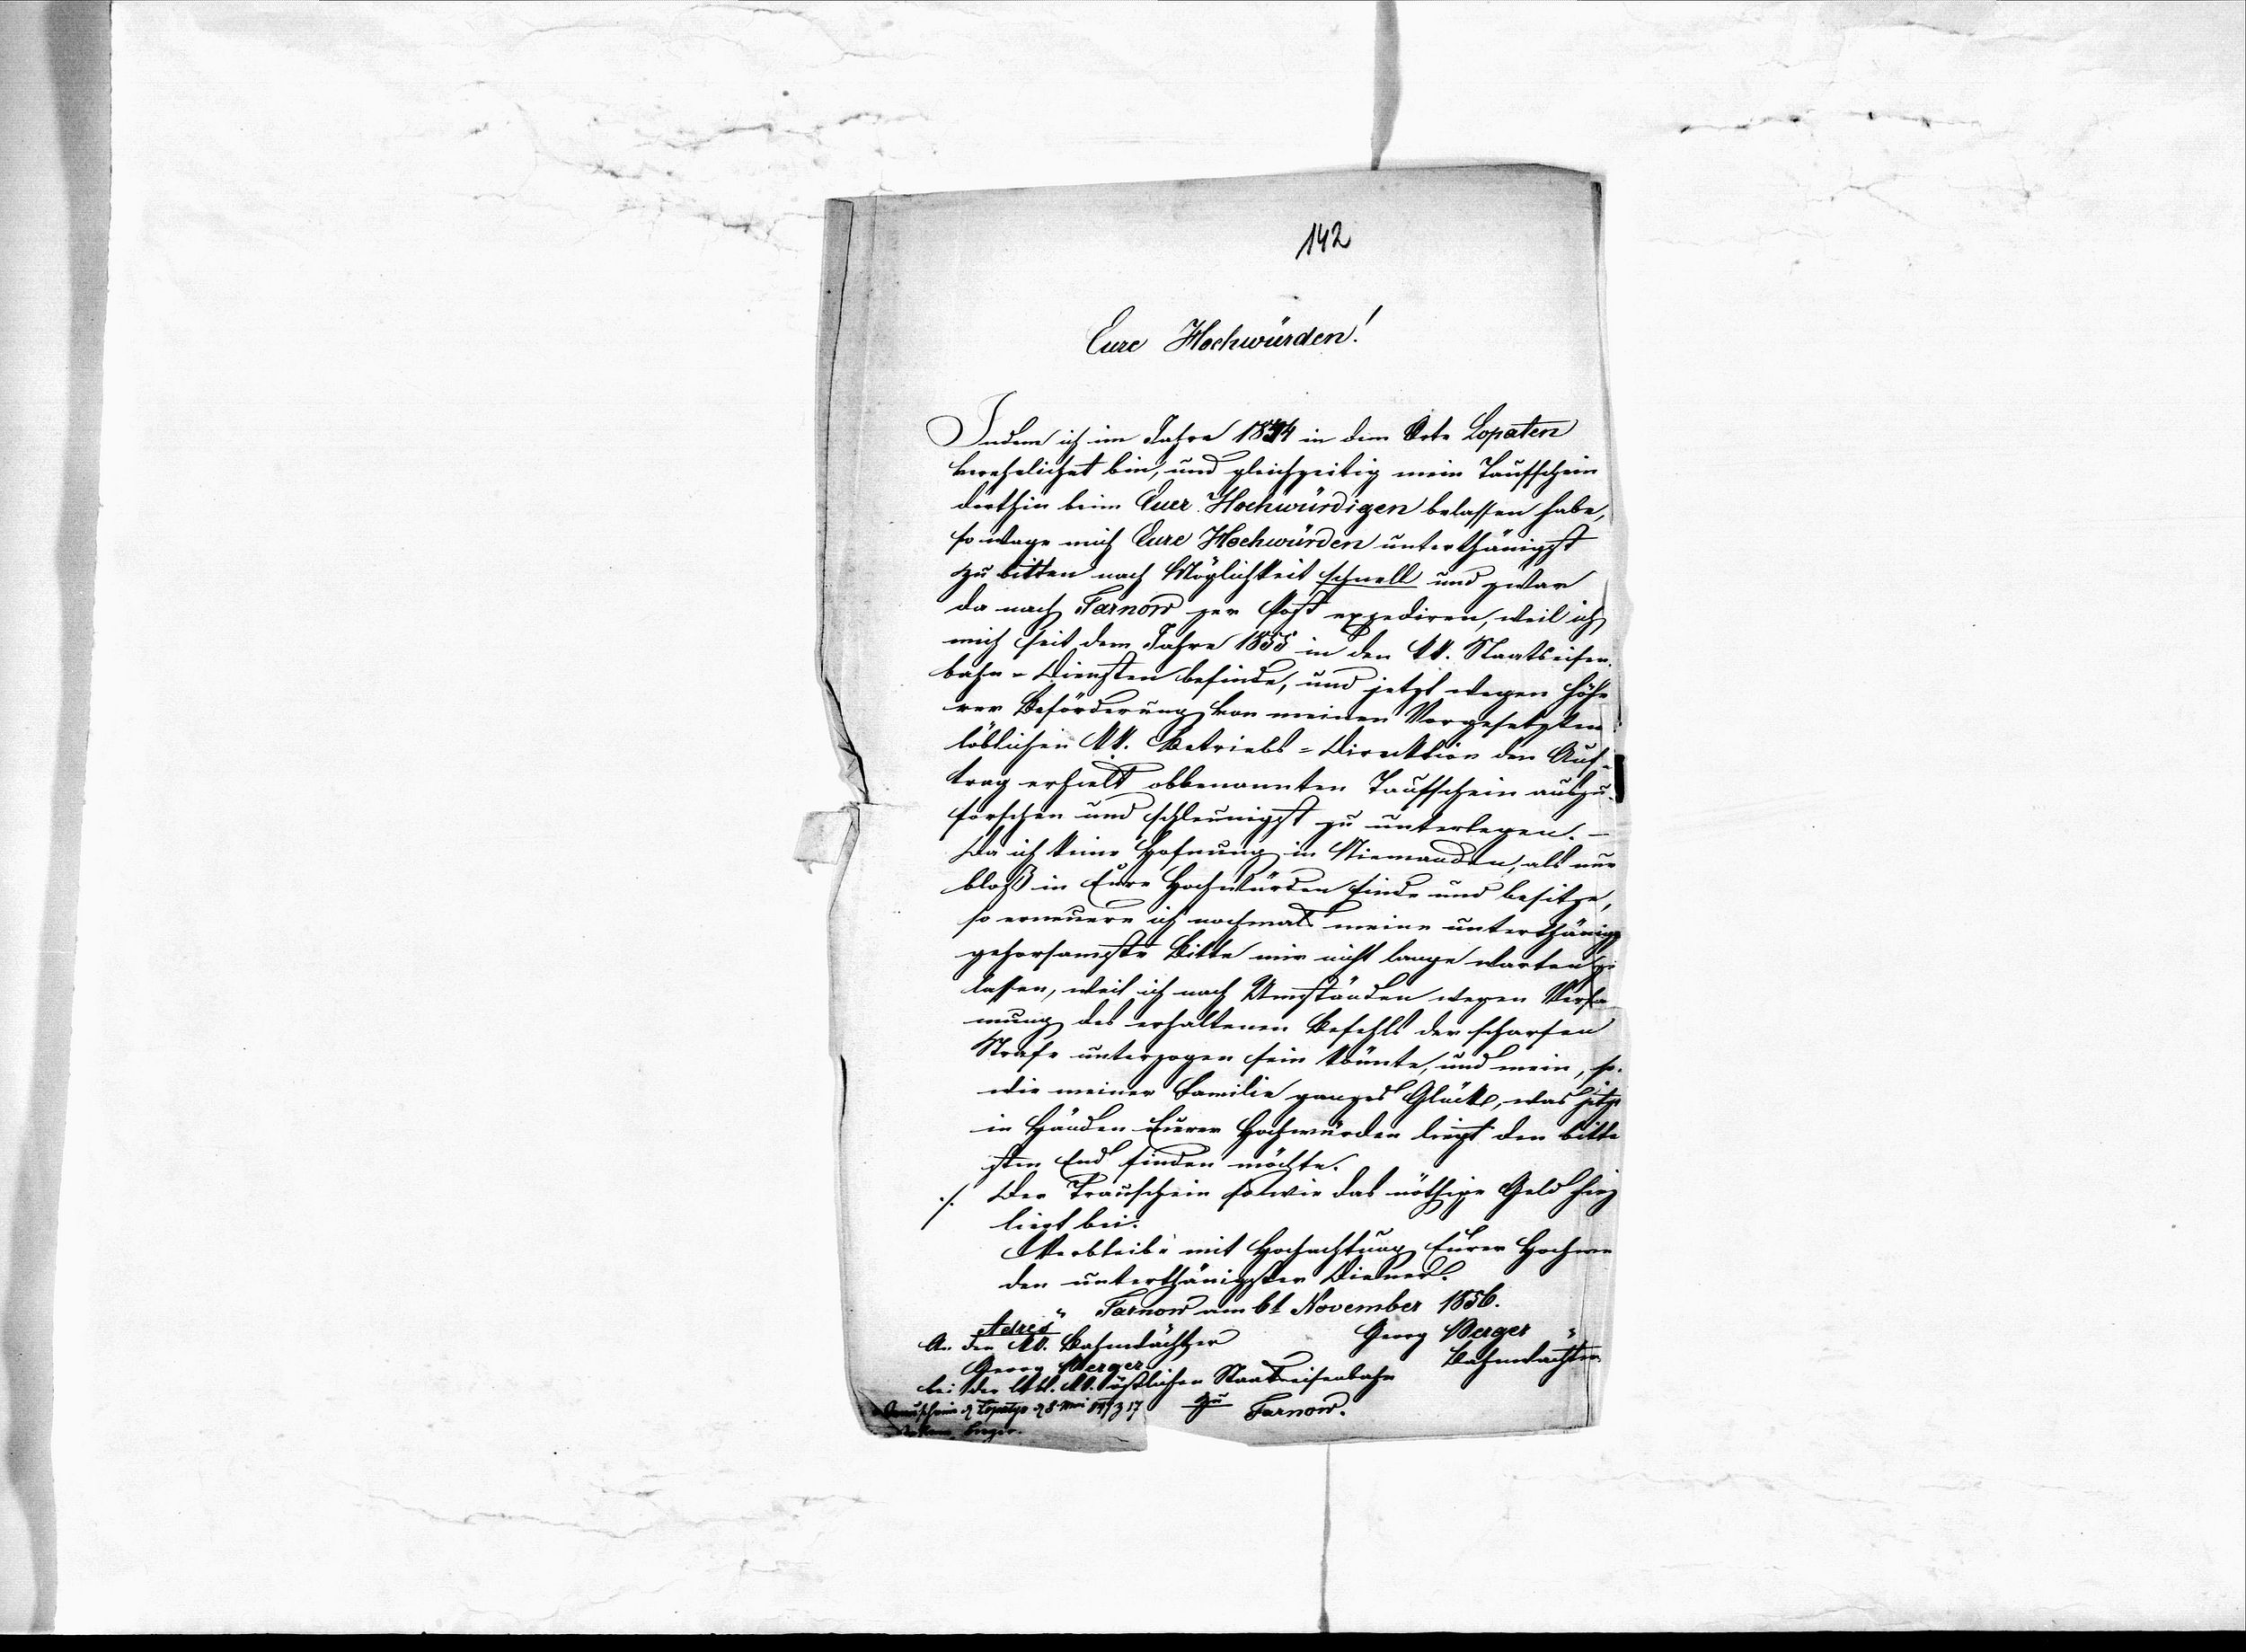 142
Eure Hochwürden!
Indem ich im Jahre 1854 in dem Orte Lopaten
verehelichet bin, und gleichzeitig mein Taufschein
dorthin beim Euer Hochwürdigen belassen habe,
so wage mich Eure Hochwürden unterthänigst
zu bitten nach Möglichkeit schnell und zwar
da nach Tarnow per Post expediren, weil ich
mich seit dem Jahre 1855 in den kk. Staatseisen-
bahn-Diensten befinde, und jetzt wegen höhe
rer Beförderung von meinen Vorgesetzten
löblichen kk. Betriebs-Direktion den Auf-
trag erhielt obbenannten Taufschein auszu-
forschen und schleunigst zu unterlegen. –
Da ich keine Hofnung in Niemanden, als nur
bloß in Eure Hochwürden finde und besitze,
so erneuere ich nochmals meine unterthänigst
gehorsamste Bitte mir nicht lange warten zu
lassen, weil ich nach Umständen wegen
des erhaltenen Befehls der scharfen
Strafe unterzogen sein könnte, und mein, so-
wie meiner Familie ganzes Glück, was jetzt
in Händen Eurer Hochwürden liegt den bitte
sten End finden möchte.
./. Der Trauschein sowie das nöthige Geld hiez
liegt bei.
Verbleibe mit Hochachtung Eurer Hochwür
den unterthänigster Diener.
Tarnow am 6t November 1856.
Adres
Georg Berger
An den kk. Bahnwächter
Bahnwächter
Georg Berger
bei der löbl. kk. östlichen Staatseisenbahn
zu Tarnow.
Trauschein Lopatyn 8 Mai